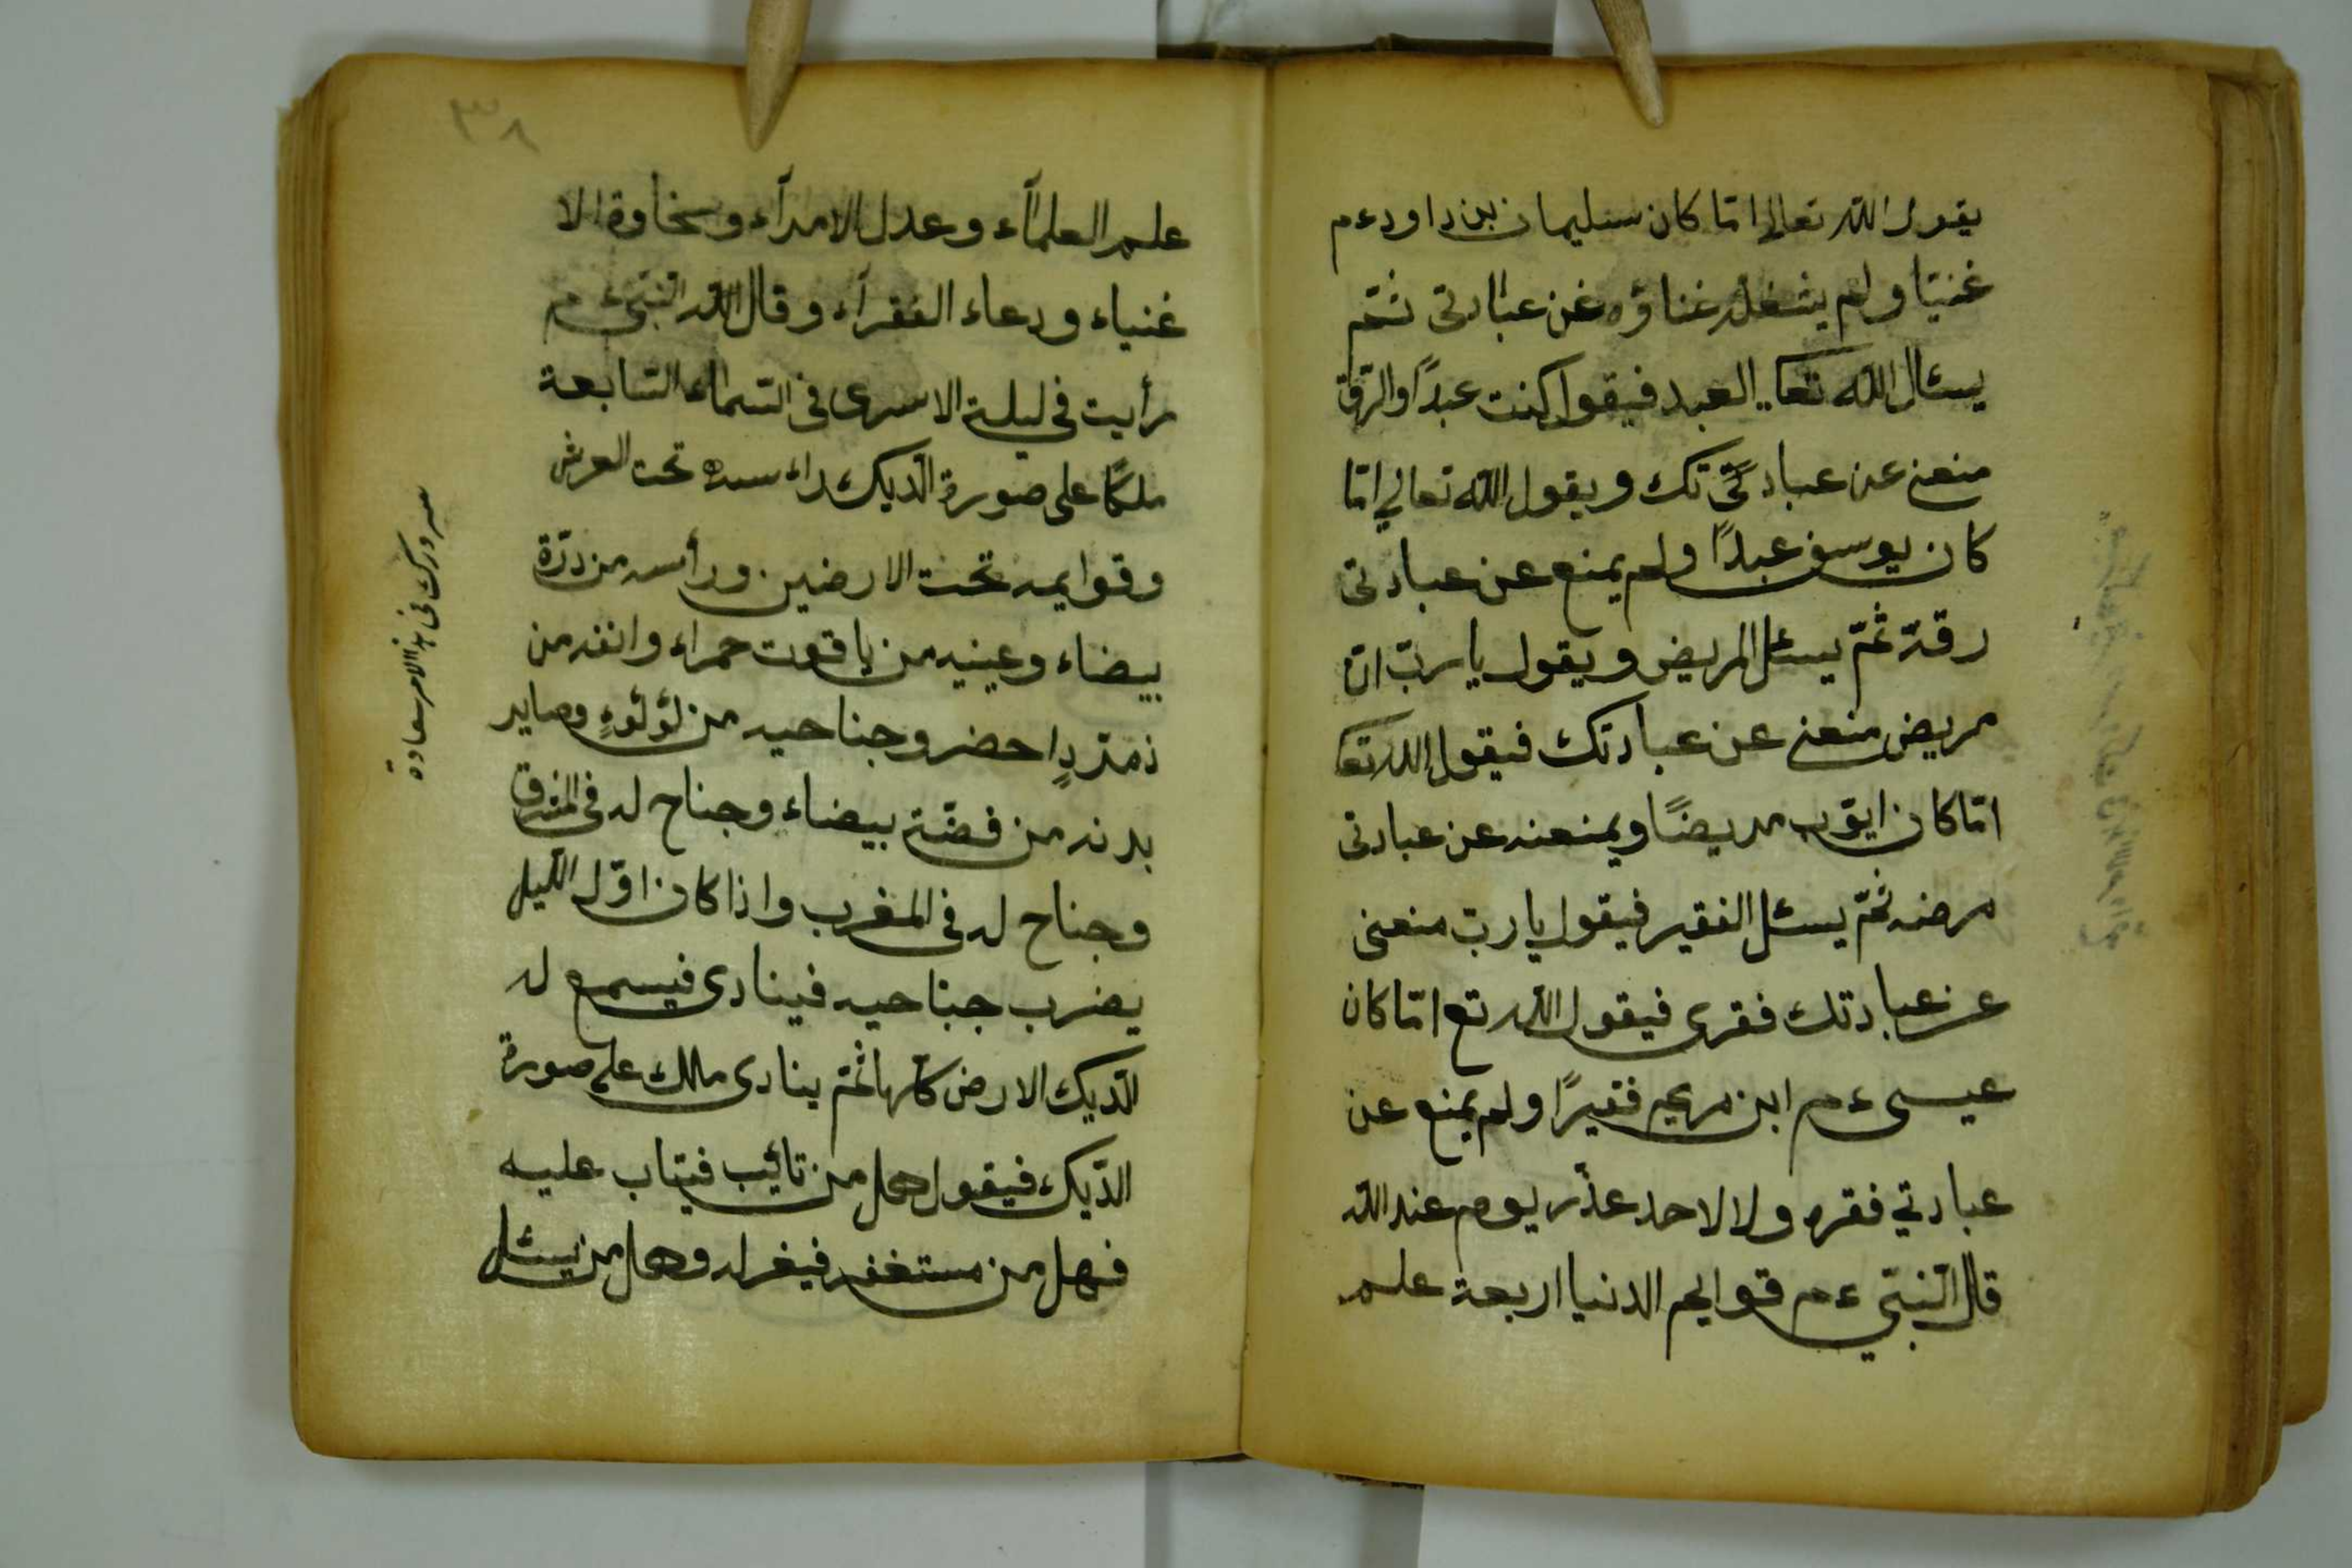 يقول الله تعالى امّا كان سليمان بن داود ءم
غنيّا ولم يشغله غناؤه عن عبادتى ثمّ
يسئال الله تعا العبد فيقول كنت عبدًا والرّق
منعنى عن عبادتك ويقول الله تعالى امّا
كان يوسف عبدًا ولم يمنع عن عبادتى
رقه ثمّ يسئل المريض ويقول يا ربّ انا
مريض منعنى عن عبادتك فيقول الله تعا
امّا كان ايّوب مريضًا ويمنعنه عن عبادتى
مرضه ثمّ يسئل الفقير فيقول يا ربّ منعنى
عن عبادتك فقرى فيقول الله تع امّا كان
عيسى ءم ابن مريم فقيرًا ولم يمنع عن
عبادتي فقره ولا لاحد عذر يوم عند الله
قال النّبيّ ءم قوايم الدنيا اربعة علم
٣٨
علم العلمآء وعدل الامرآء وسخاوة الا
غنياء ودعاء الفقرآء وقال النّبيّ ءم
رأيت في ليلة الاسرى فى السّماء السّابعة
ملكًا على صورة الدّيك تحت العرش
وقوايمه تحت الارضين ورأسه من درّة
بيضاء وعينيه من ياقوت حمراء وانفه من
زمرّدٍ احضر وجناحيه من لؤلؤءٍ وساير
بدنه من فضّة بيضاء وجناح له فى المشرق
وجناح له فى المغرب واذا كان اوّل اللّيل
يضرب جناحيه فينادى فيسمع له
الدّيك الارض كلّها ثمّ ينادى مالك على صورة
الدّيك فيقول هل من تائيب فيتاب عليه
فهل من مستغفر فيغفر له وهل من يسئل